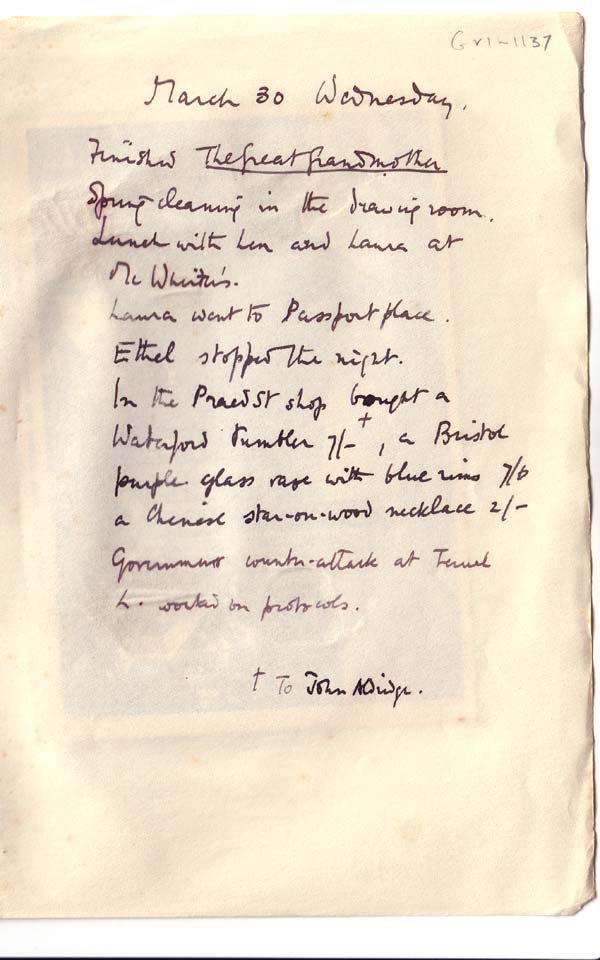 GV1-1137
March 30 Wednesday.
Finished The Great Grandmother
Spring-cleaning in the drawing room.
Lunch with Len and Laura at
McWhirter's.
Laura went to Passport place.
Ethel stopped the night.
In the Praed St shop bought a
Waterford tumbler 7/-†, a Bristol
purple glass vase with blue rims 7/6
a Chinese star-on-wood necklace 2/-
Government counter-attack at Teruel
L. worked on protocols.
† To John Aldridge.